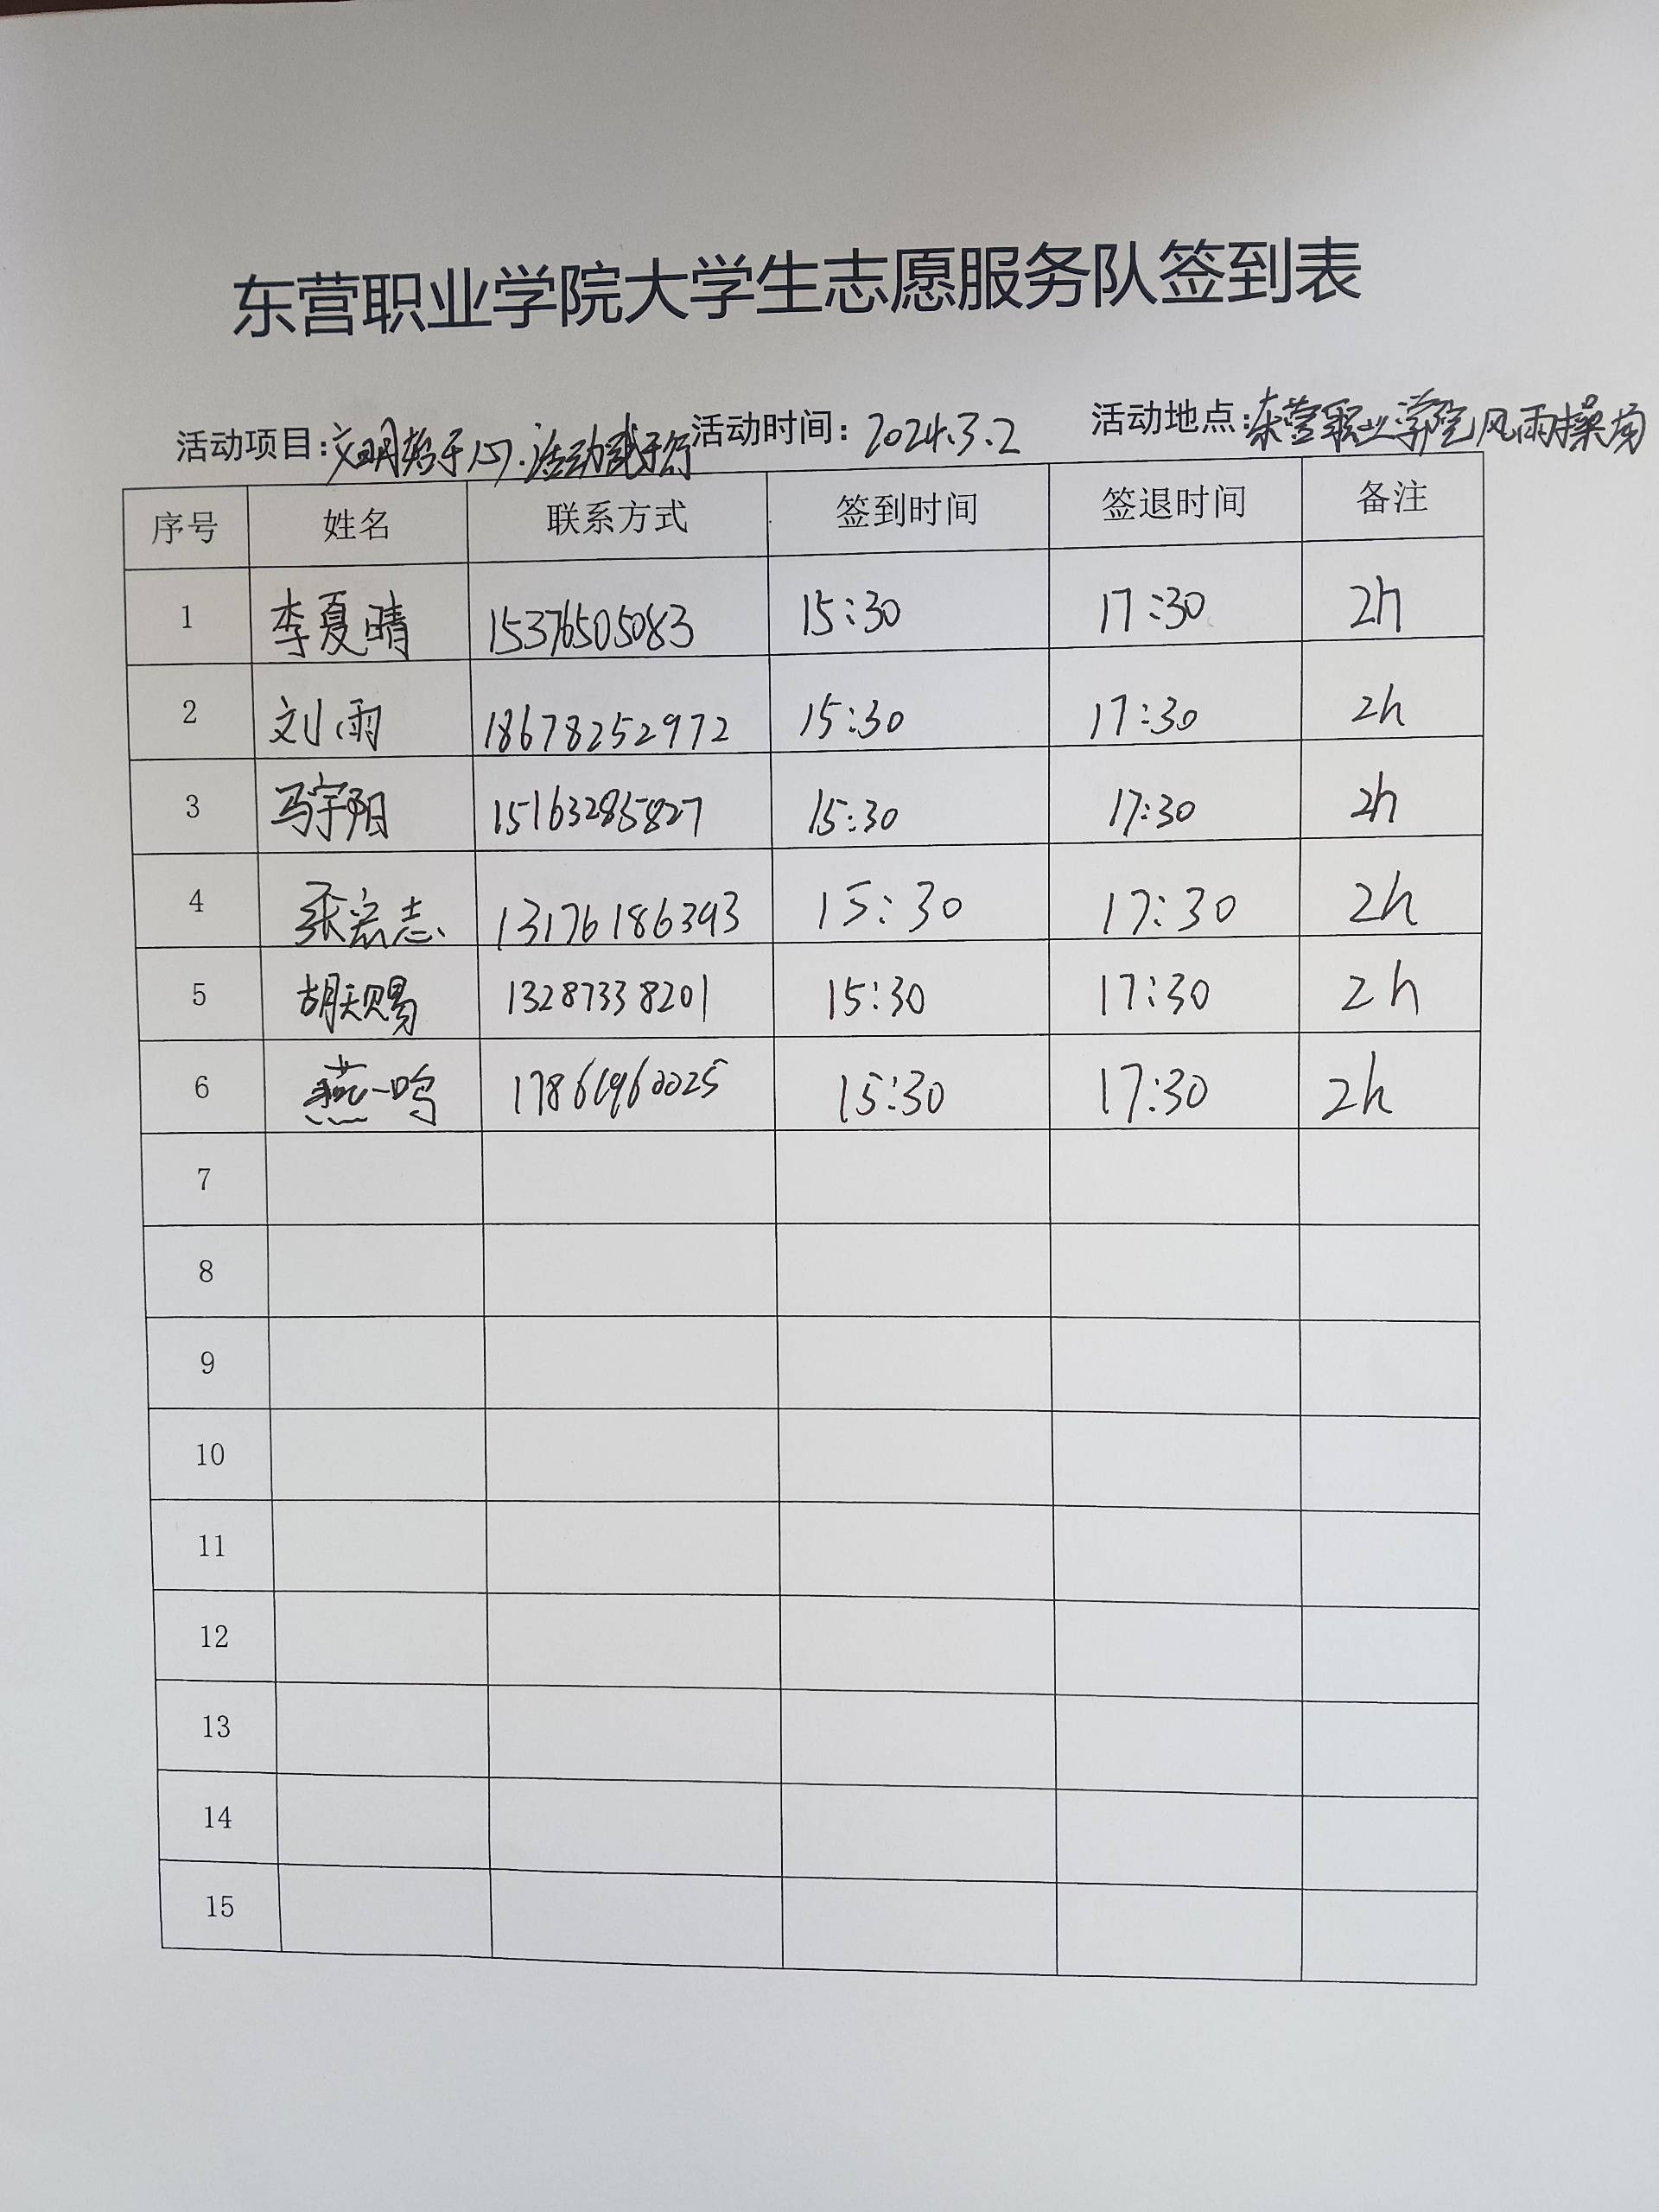 东营职业学院大学生志愿服务队签到表
活动项目:文明始于心,活动践于行 活动时间:2024.3.2 活动地点:东营职业学院风雨操场
序号 姓名 联系方式 签到时间 签退时间 备注
1 李夏晴 15376505083 15:30 17:30 2h
2 刘雨 18678252972 15:30 17:30 2h
3 马宇阳 15163285827 15:30 17:30 2h
4 张宏志 13176186393 15:30 17:30 2h
5 胡天赐 13287338201 15:30 17:30 2h
6 燕一鸣 17861960025 15:30 17:30 2h
7
8
9
10
11
12
13
14
15